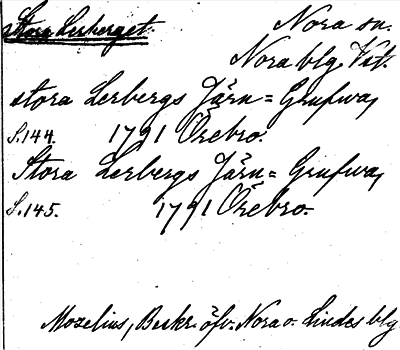 Stora Lerberget.
Nora sn.
Nora blg. Vst.
stora Lerbergs Järn= Grufwa,
S. 144. 1791 Örebro.
Stora Lerbergs Järn= Grufwa,
S. 145. 1791 Örebro.
Mozelius, Beskr. öfv. Nora o. Lindes blg.